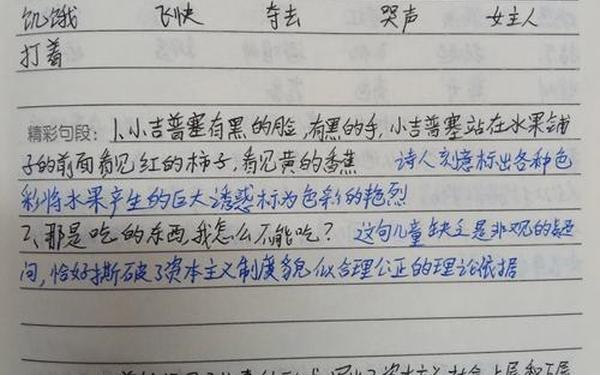 饥饿 飞快 夺去 哭声 女主人
打着
精彩句段: 1、小吉普塞有黑的脸,有黑的手,小吉普塞站在水果铺
子的前面看见红的柿子,看见黄的香蕉 诗人刻意标出各种色
彩将水果产生的巨大诱惑标为色彩的艳烈
2、那是吃的东西,我怎么不能吃? 这句儿童缺乏是非观的疑
问,恰好撕破了资本主义制度貌似合理公正的理论依据